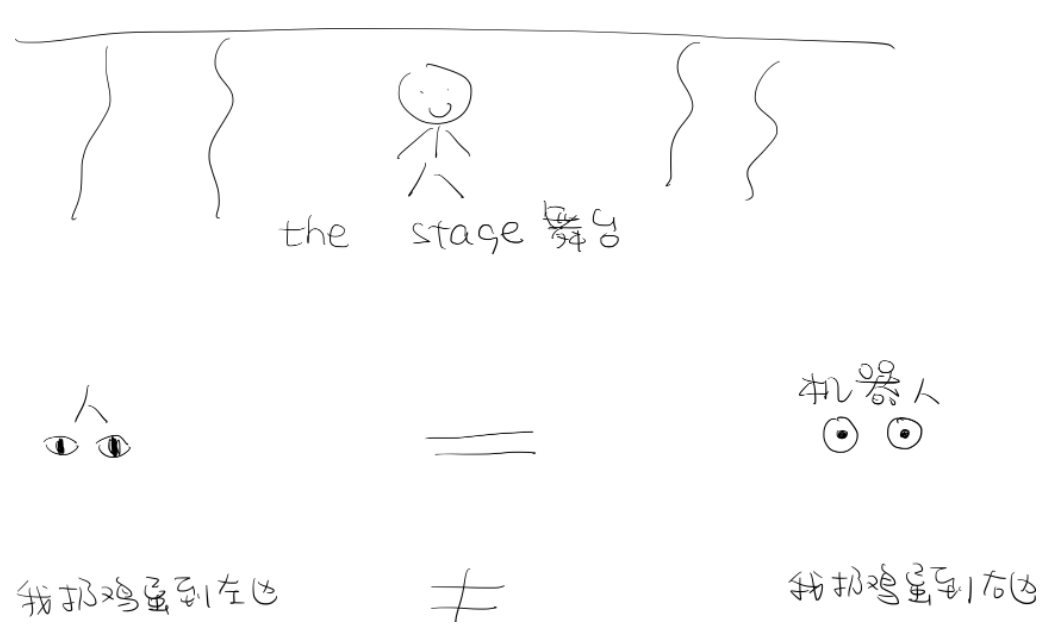 the stage 舞台
人 = 机器人
我扔鸡蛋到左边 ≠ 我扔鸡蛋到右边